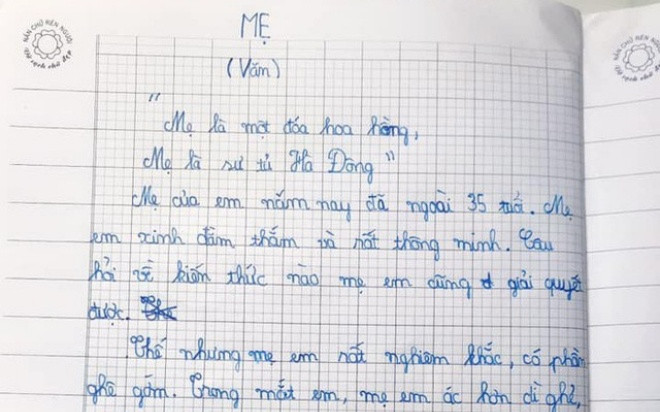 MẸ
(Văn)
"
Mẹ là một đóa hoa hồng,
Mẹ là sư tử Hà Đông"
Mẹ của em năm nay đã ngoài 35 tuổi. Mẹ
em xinh đằm thắm và rất thông minh. Câu
hỏi về kiến thức nào mẹ em cũng giải quyết
được.
Thế nhưng mẹ em rất nghiêm khắc, có phần
ghê gớm. Trong mắt em, mẹ em ác hơn dì ghẻ,
NẮN CHỮ RÈN NGƯỜI
Giữ sạch chữ đẹp
NẮN CHỮ RÈN